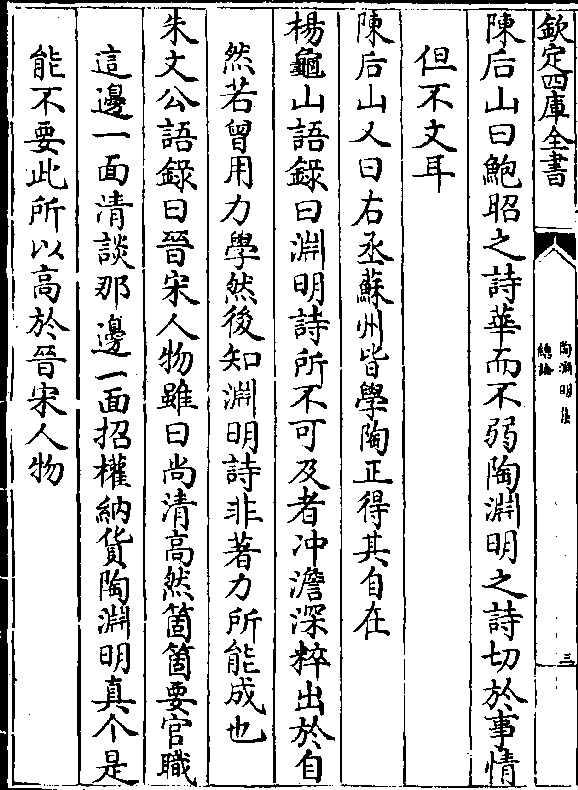 欽定四庫全書
陶淵明集
總論
三
陳后山曰鮑昭之詩華而不弱陶淵明之詩切於事情
但不文耳
陳后山又曰右丞蘇州皆學陶正得其自在
楊龜山語錄曰淵明詩所不可及者冲澹深粹出於自
然若曾用力學然後知淵明詩非著力所能成也
朱文公語錄曰晉宋人物雖曰尚清高然箇箇要官職
這邊一面清談那邊一面招權納貨陶淵明真个是
能不要此所以高於晉宋人物